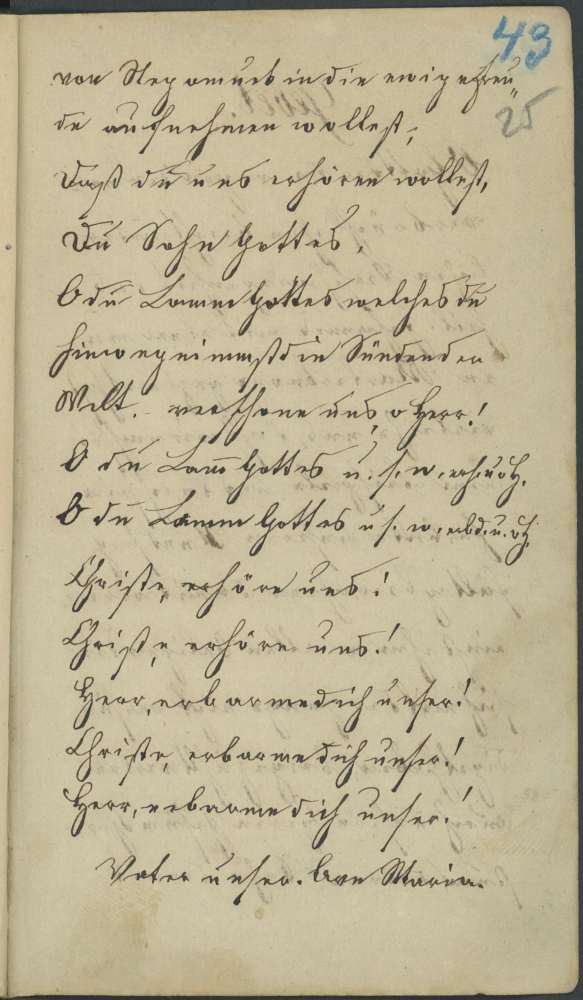 43
25
von Nepomuck in die ewige Freu
de aufnehmen wollest;
Daß du uns erhören wollest,
Du Sohn Gottes,
O du Lamm Gottes welches du
hinwegnimmst die Sünden der
Welt. verschone uns, o Herr!
O du Lam̅ Gottes u. s. w. erh. u. o H.
O du Lamm Gottes u s. w. erb. d. u. o H.
Christe, erhöre uns!
Christe, erhöre uns!
Herr, erbarme dich unser!
Christe, erbarme dich unser!
Herr, erbarme dich unser!
Vater unser. Ave Maria.